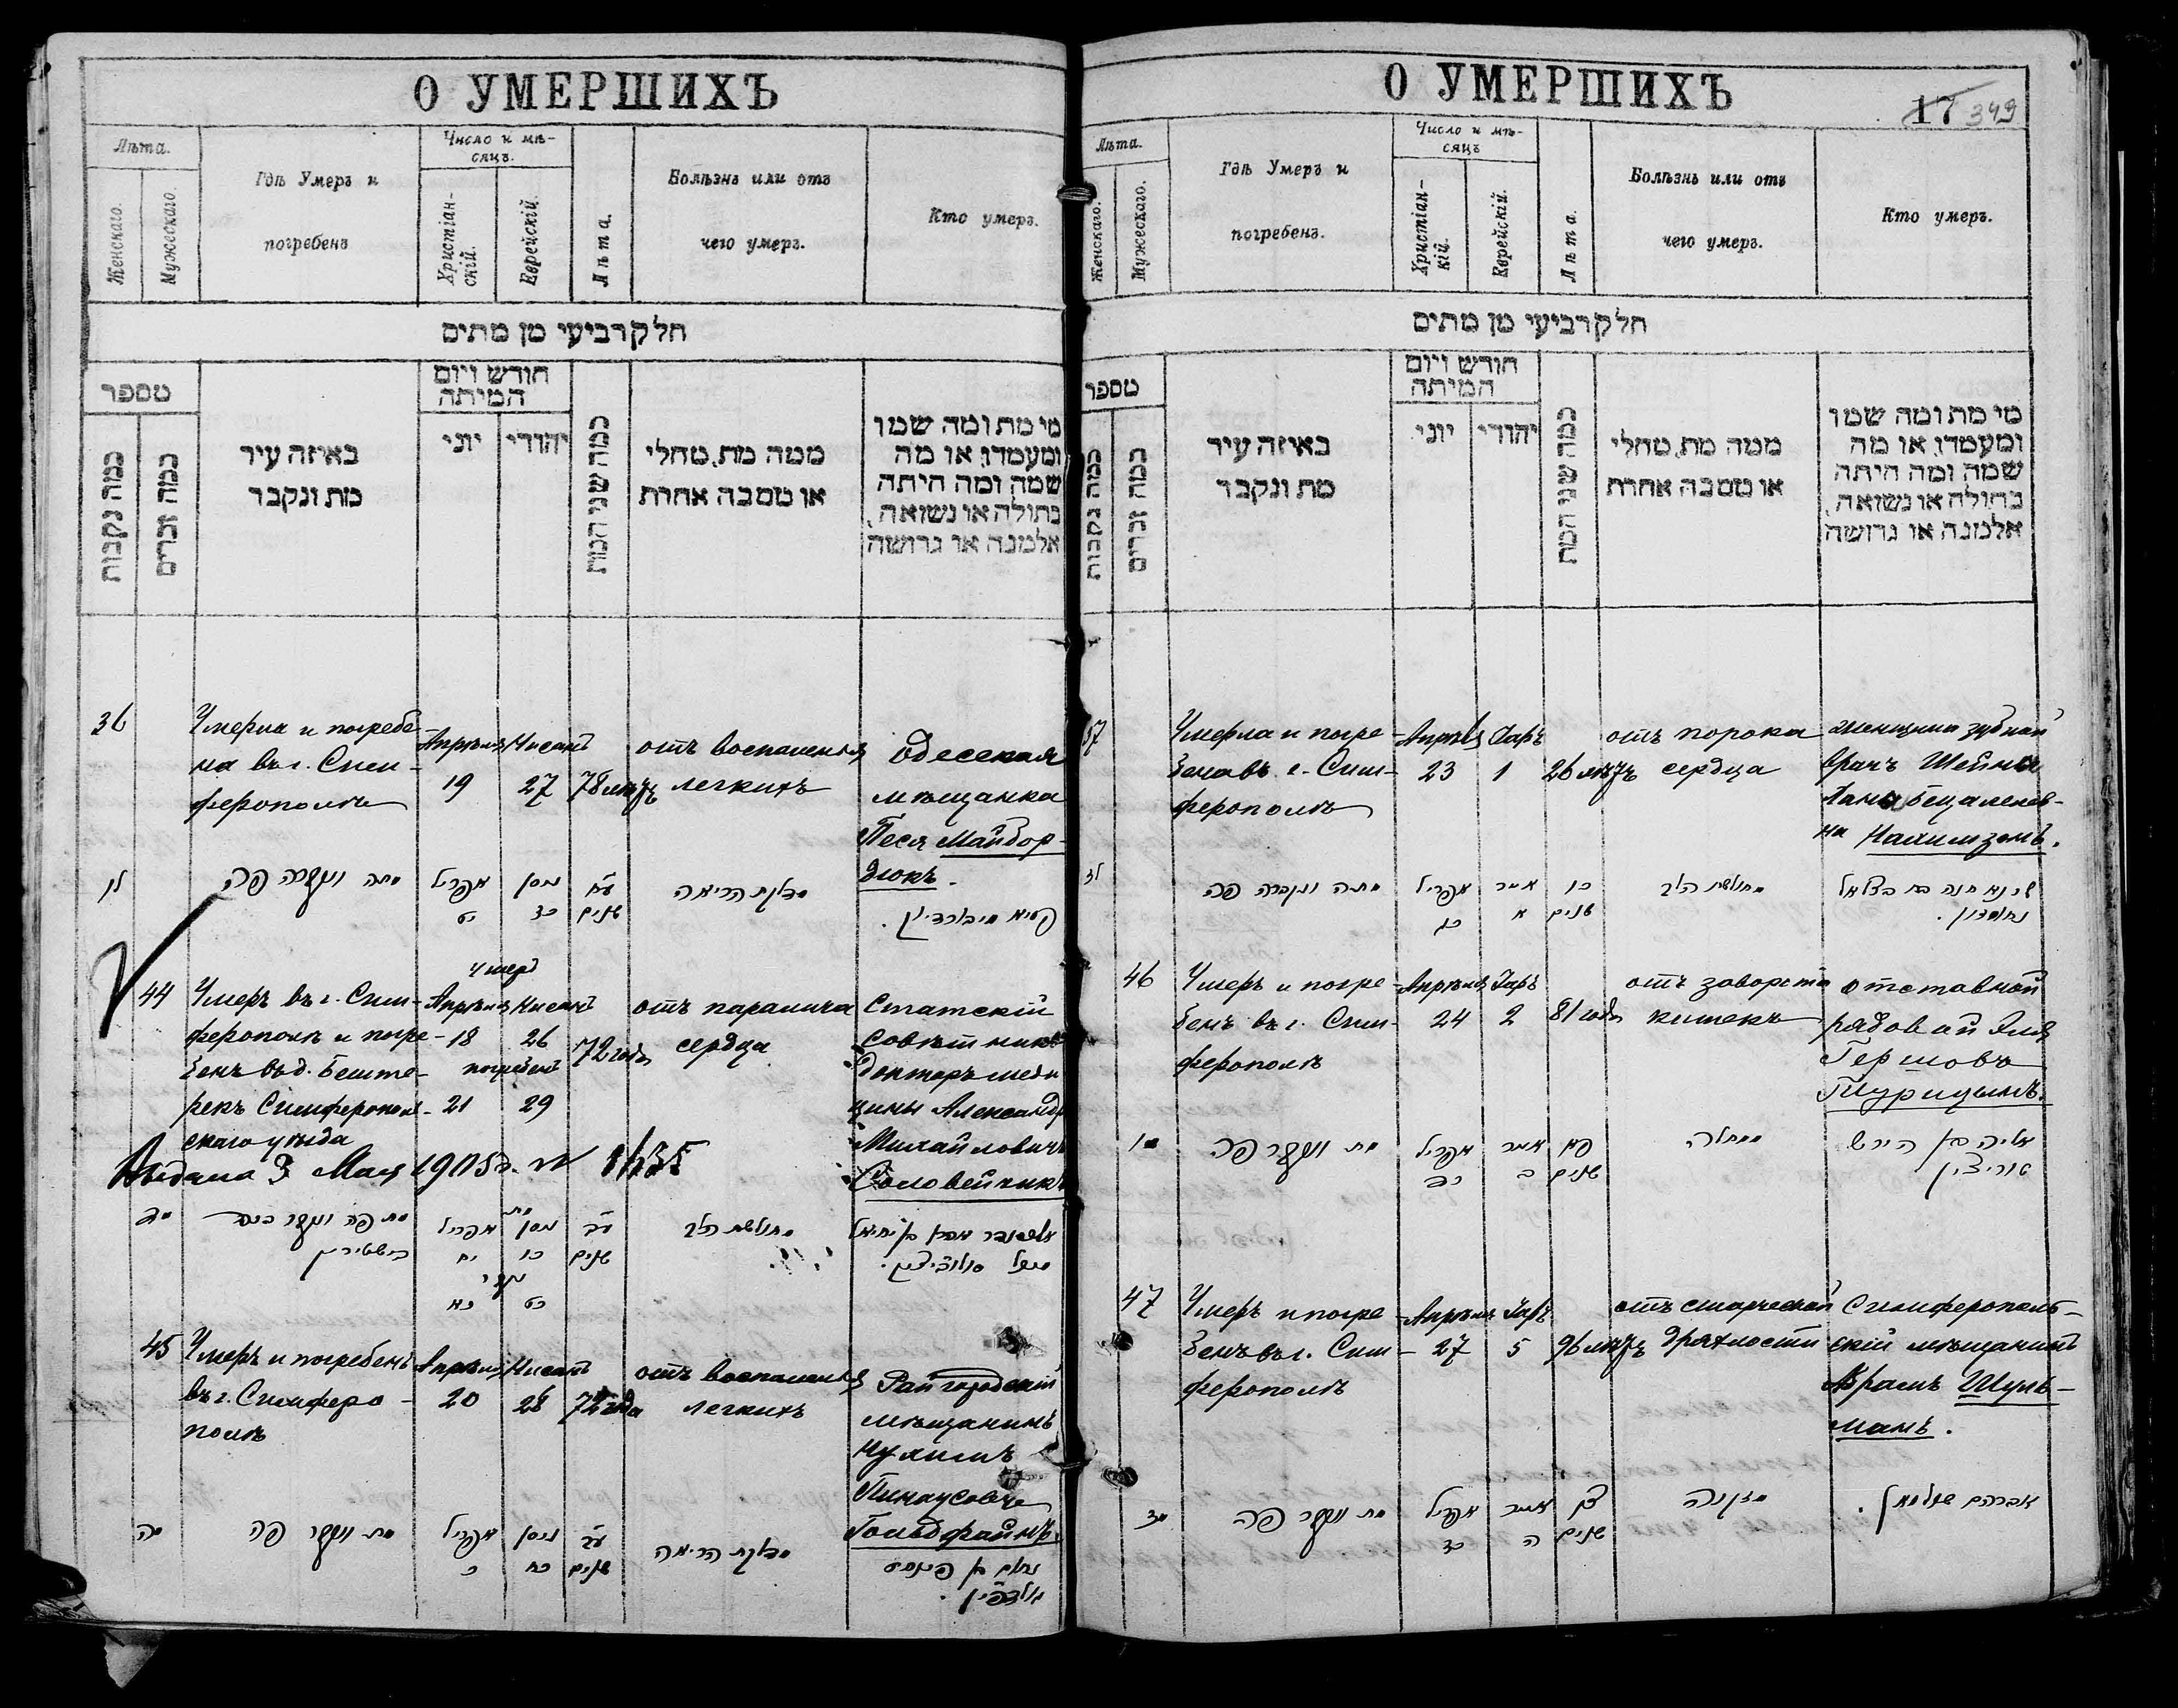 О УМЕРШИХЪ
Лѣта.
Женскаго.
Мужескаго.
Гдѣ Умеръ и
погребенъ
Число и мѣ-
сяцъ.
Христіан-
скій.
Еврейскій.
Лѣта.
Болѣзнь или отъ
чего умеръ.
Кто умеръ.
חלק רביעי מן מתים
מספר
כמה נקבות
כמה זכרים
באיזה עיר
מת ונקבר
חודש ויום
המיתה
יוני
יהודי
כמה שני המת
ממה מת, מחלי
או מסבה אחרת
מי מת ומה שמו
ומעמדו, או מה
שמה ומה היתה
בתולה או נשואה,
אלמנה או גרושה
36
Умерла и погребе-
на въ г. Сим-
ферополѣ
Апрѣля
19
Нисанъ
27
78 лѣтъ
отъ воспаленія
легкихъ
Одесская
мѣщанка
Песя Майбор-
дюкъ.
לו
מתה ונקברה פה
אפריל
יט
ניסן
כז
עח
שנים
מדלקת הריאה
פעסיא מייבורדיוק.
44
Умеръ въ г. Сим-
ферополѣ и погре-
бенъ въ д. Беште-
рекъ Симферополь-
скаго уѣзда
умеръ
Апрѣля Нисанъ
18 26
погребенъ
21 29
72 года
отъ паралича
сердца
Статскій
Совѣтникъ
Докторъ меди
цины Александръ
Михайловичъ
Соловейчикъ
Выдана 3 Мая 1905 г. №
מד
מת פה ונקבר בכפר
בישטירעק
מת
אפריל
יח
ניסן
כו
נקבר
כא
כט
עב
שנים
מחולשת הלב
45
Умеръ и погребенъ
въ г. Симферо-
полѣ
Апрѣля
20
Нисанъ
28
72 года
отъ воспаленія
легкихъ
Райгородскій
мѣщанинъ
Нухимъ
Пинхусовъ
Гольдфайнъ.
מה
מת ונקבר פה
אפריל
כ
ניסן
כח
עב
שנים
מדלקת הריאה
נחום בן פינחס
גולדפיין.
О УМЕРШИХЪ
17 349
Лѣта.
Женскаго.
Мужескаго.
Гдѣ Умеръ и
погребенъ.
Число и мѣ-
сяцъ
Христіан-
кій.
Еврейскій.
Лѣта.
Болѣзнь или отъ
чего умеръ.
Кто умеръ.
חלק רביעי מן מתים
מספר
כמה נקבות
כמה זכרים
באיזה עיר
מת ונקבר
חודש ויום
המיתה
יוני
יהודי
כמה שני המת
ממה מת, מחלי
או מסבה אחרת
מי מת ומה שמו
ומעמדו, או מה
שמה ומה היתה
בתולה או נשואה,
אלמנה או גרושה
37
Умерла и погре-
бена въ г. Сим-
ферополѣ
Апрѣля
23
Iаръ
1
26 лѣтъ
отъ порока
сердца
женщина зубной
врачъ Шейна
Хана Бецалелев-
на
לז
מתה ונקברה פה
אפריל
כג
אייר
א
כו
שנים
מחולשת הלב
שיינא חנה בת בצלאל
46
Умеръ и погре-
бенъ въ г. Сим-
ферополѣ
Апрѣля
24
Iаръ
2
81 года
отъ заворота
кишекъ
отставной
рядовой Эля
Гершовъ
Турицынъ.
מת ונקבר פה
אפריל
אייר
ב
פא
שנים
אליה בן הירש
טוריצין
47
Умеръ и погре-
бенъ въ г. Сим-
ферополѣ
Апрѣля
27
Iаръ
5
96 лѣтъ
отъ старческой
дряхлости
Симферополь-
скій мѣщанинъ
Абрамъ Шуль-
манъ.
מז
מת ונקבר פה
אפריל
כז
אייר
ה
צו
שנים
מזקנה
אברהם שולמאן.